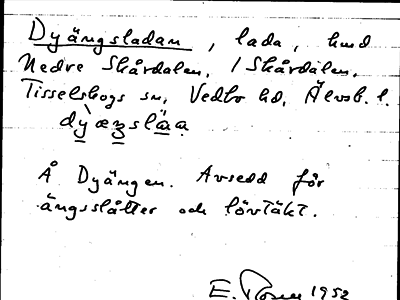 Dyängsladan, lada, hmd
Nedre Skårdalen, / Skårdalen,
Tisselskogs sn, Vedbo hd, Älvsb. l.
Å Dyängen. Avsedd för
ängsslåtter och lövtäkt.
E. 1952